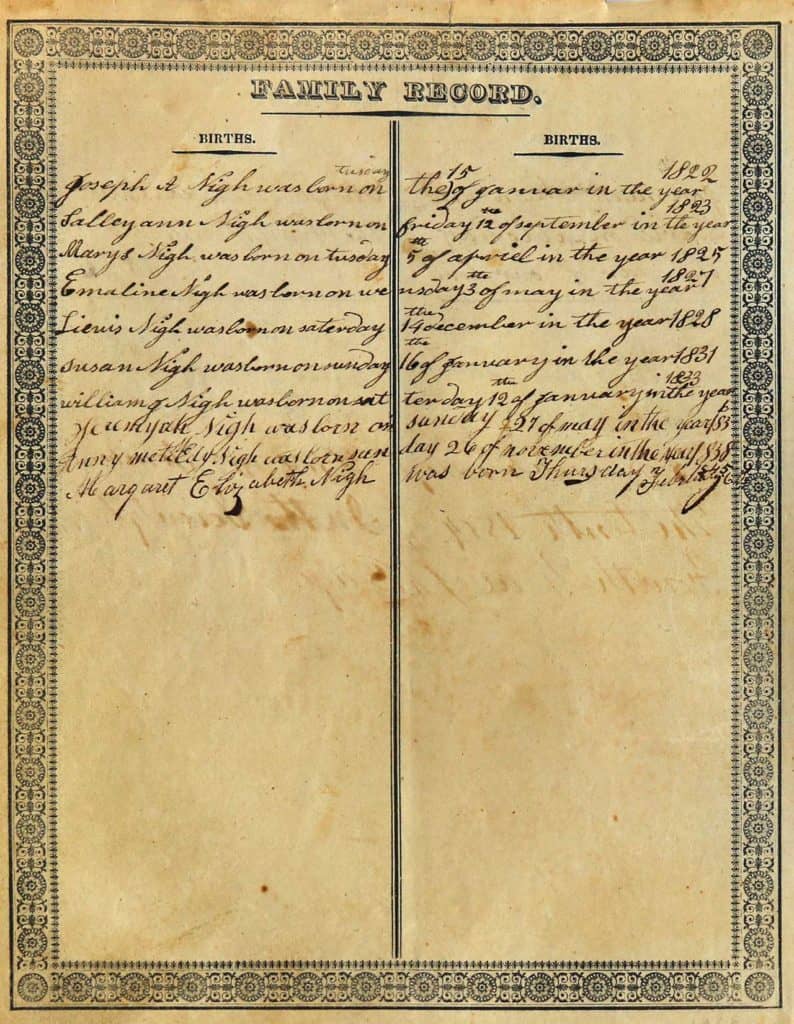 FAMILY RECORD.
BIRTHS. BIRTHS.
Joseph A Nigh was born on tuesday the 15 of januar in the year 1822
Salleyann Nigh was born on friday 12 the of september in the year 1823
Marys Nigh was born on tusday 5 th of apriel in the year 1825
Emaline Nigh was born on we nsday 3 the of may in the year 1827
Liewis Nigh was born on saterday the 14 december in the year 1828
susan Nigh was born on sunday the 16 of january in the year 1831
william Nigh was born on sat terday 12 the of january in the year 1833
Nigh was born on sunday 27 of may in the year
Anny Nigh was born sun day 26 of november in the year
Margaret Elizabeth Nigh was born Thursday